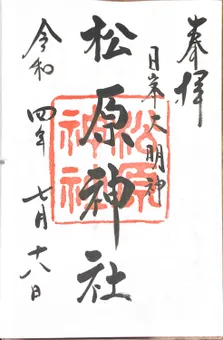 奉拝
日峯大明神
松原神社
松原神社
令和四年七月十八日